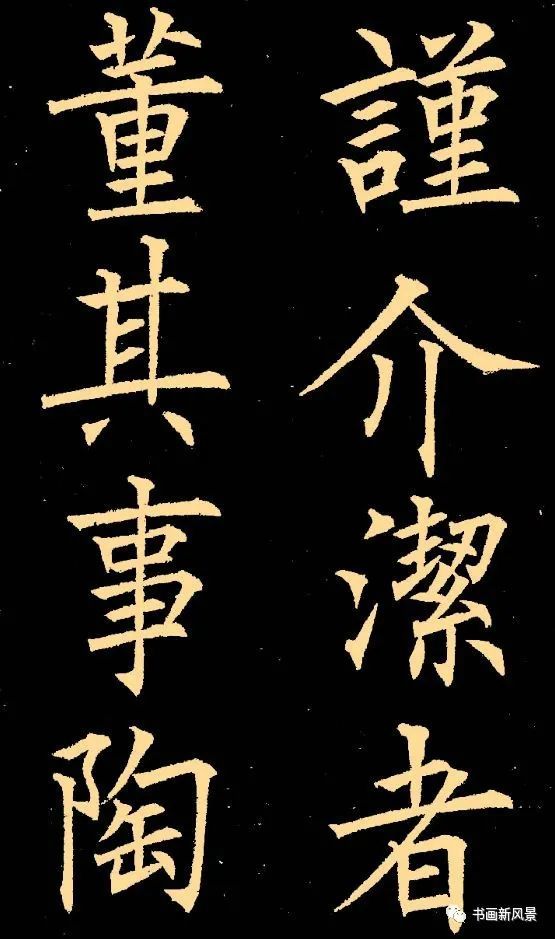 謹介潔者
董其事陶
书画新风景